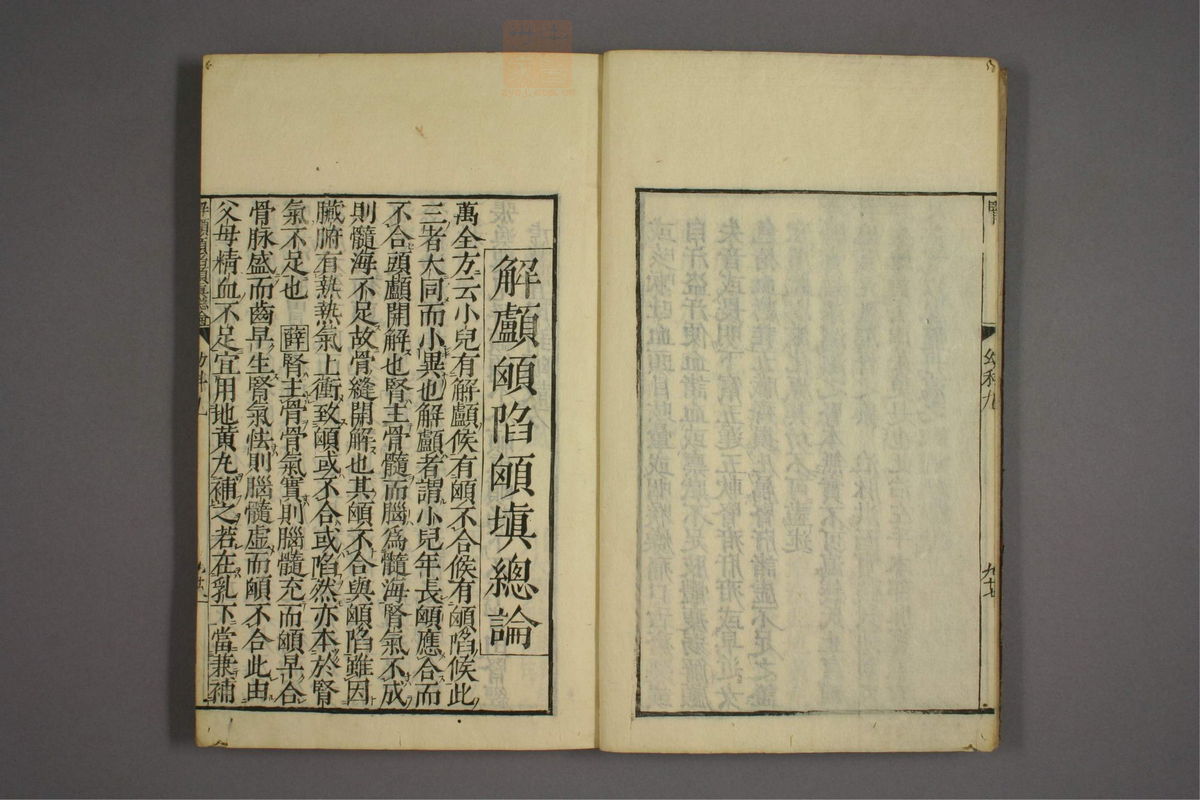 腎
幼科九
解顱顖陷顖塡總論
萬全方云小兒有解顱候有顖不合候有顖陷候此
三者大同而小異也解顱者謂小兒年長顖應合而
不合頭顱開解也腎主骨髓而腦爲髓海腎氣不成
則髓海不足故骨縫開解也其顖不合與顖陷雖因
臟腑有熱熱氣上衝致顖或不合或陷然亦本於腎
氣不足也 薛腎主骨骨氣實則腦髓充而顖早合
骨脉盛而齒早生腎氣怯則腦髓虛而顖不合此由
父母精血不足宜用地黄丸補之若在乳下當兼補